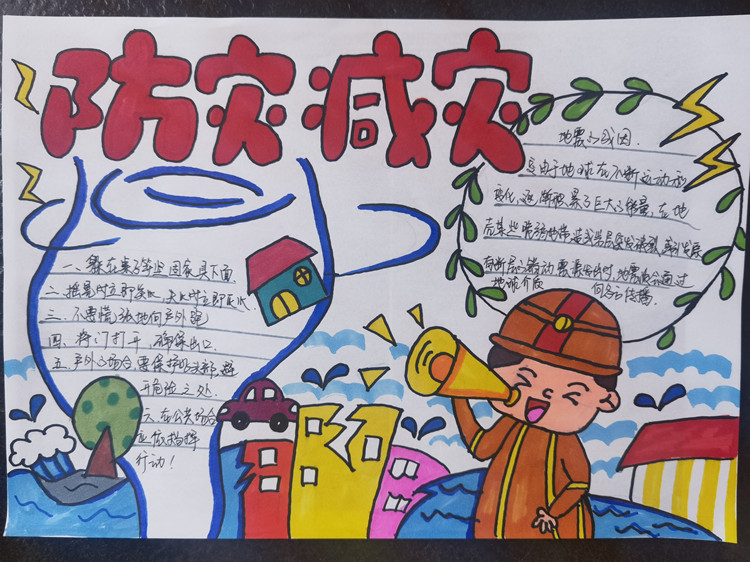 防灾减灾
地震之成因
是由于地球在不断运动和
变化,逐渐积累了巨大之能量,在地
壳某些脆弱地带,造成岩层突发破裂,或引发原
有断层之错动 震发生时,地震波会通过
地球介质 向各方传播.
一、躲在桌子等坚固家具下面.
二、摇晃时立即关火,失火时立即灭火.
三、不要慌张地向户外跑
四、将门打开,确保出口.
五、户外之场合,要保护好头部,避
开危险之处.
六、在公共场合
应依指挥
行动!